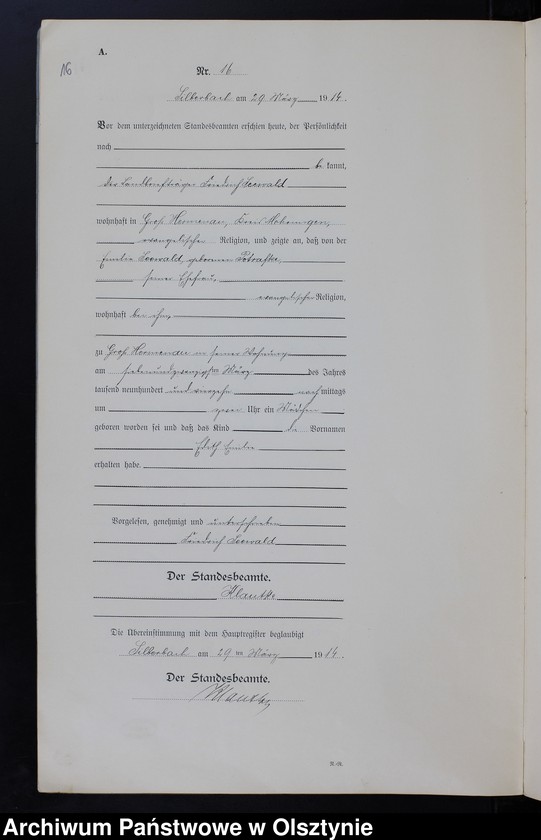 A.
16
Nr. 16
Silberbach am 29 März 1914.
Vor dem unterzeichneten Standesbeamten erschien heute, der Persönlichkeit
nach
be kannt,
der Landbriefträger Friedrich Seewald
wohnhaft in Groß Hermenau, Kreis Mohrungen,
evangelischer Religion, und zeigte an, daß von der
Emilie Seewald, geborenen Petrafke,
seiner Ehefrau,
evangelischer Religion,
wohnhaft bei ihm,
zu Groß Hermenau in seiner Wohnung
am siebenundzwanzigsten März des Jahres
tausend neunhundert und vierzehn nach mittags
um zwei Uhr ein Mädchen
geboren worden sei und daß das Kind die Vornamen
Edith Emilie
erhalten habe.
Vorgelesen, genehmigt und unterschrieben
Friedrich Seewald
Der Standesbeamte.
Klautke
Die Übereinstimmung mit dem Hauptregister beglaubigt
Silberbach am 29 ten März 1914.
Der Standesbeamte.
Klautke
Archiwum Państwowe w Olsztynie